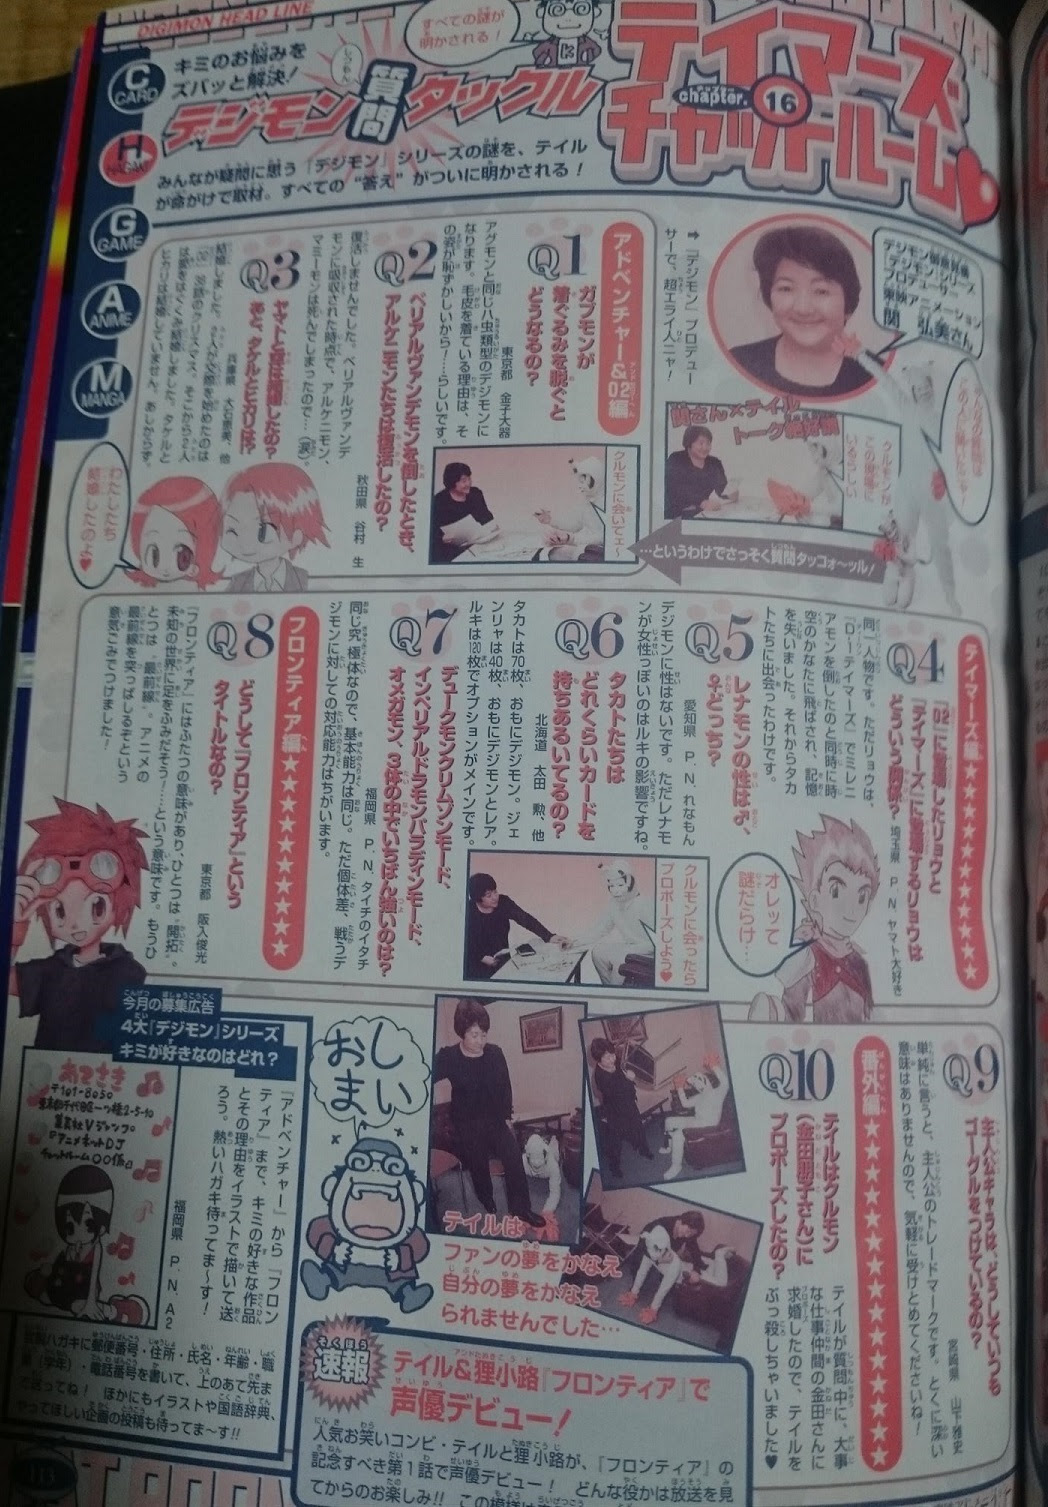 DIGIMON HEAD LINE
C CARD
H HAGAKI
G GAME
A ANIME
M MANGA
キミのお悩みを
ズバッと解決!
デジモン質問タックル
すべての謎が
明かされる!
テイマーズ
chapter. 16
チャットルーム
みんなが疑問に思う『デジモン』シリーズの謎を、テイル
が命がけで取材。すべての“答え”がついに明かされる!
デジモン
プロデューサー
東映アニメーション
関 弘美さん
➡『デジモン』プロデュー
サーで、超エライ人ニャ!
関さん×テイル
トーク
クルモンが
この後ろに
いるらしい
…というわけでさっそく質問タッコォ〜ッル!
アドベンチャー&02編
Q1
ガブモンが
着ぐるみを脱ぐと
どうなるの?
東京都 金子大器
アグモンと同じハ虫類型のデジモンに
なります。毛皮を着ている理由は、そ
の姿が恥ずかしいから!…らしいです。
Q2
ベリアルヴァンデモンを倒したとき、
アルケニモンたちは復活したの?
秋田県 谷村 生
復活しませんでした。ベリアルヴァンデ
モンに吸収された時点で、アルケニモン、
マミーモンは死んでしまったので…(涙)。
Q3
ヤマトと空は結婚したの?
あと、タケルとヒカリは!?
兵庫県 大石恵美、他
結婚しました。2人が交際を始めたのは
『02』38話のクリスマス。そこから2人
は愛をはぐくみ結婚しました。タケルと
ヒカリは結婚していません。あしからず。
クルモンに会いてェ〜
わたしたち
結婚したのよ♥
テイマーズ編★★★★★★★★★★
Q4
『02』に登場したリョウと
『テイマーズ』に登場するリョウは
どういう関係?
埼玉県 P.N.ヤマト大好き
同一人物です。ただリョウは、
『D-テイマーズ』でミレニ
アモンを倒したのと同時に時
空のかなたに飛ばされ、記憶
を失いました。それからタカ
トたちに出会ったわけです。
オレッて
謎だらけ…
Q5
レナモンの性は♂、
♀どっち?
愛知県 P.N.れなもん
デジモンに性はないです。ただレナモ
ンが女性っぽいのはルキの影響ですね。
Q6
タカトたちは
どれくらいカードを
持ちあるいてるの?
北海道 太田 勲、他
タカトは70枚、おもにデジモン。ジェ
ンリャは40枚、おもにデジモンとレア。
ルキは120枚でオプションがメインです。
クルモンに会ったら
プロポーズしよう♥
Q7
デュークモンクリムゾンモード、
インペリアルドラモンパラディンモード、
オメガモン、3体の中でいちばん強いのは?
福岡県 P.N.タイチのイタチ
同じ究極体なので、基本能力は同じ。ただ個体差、戦うデ
ジモンに対しての対応能力はちがいます。
フロンティア編★★★★★★★★★★
Q8
どうして『フロンティア』という
タイトルなの?
東京都 阪入俊光
『フロンティア』にはふたつの意味があり、ひとつは“開拓”。
未知の世界に足をふみだそう!…という意味です。もうひ
とつは“最前線”。アニメの
最前線を突っぱしるぞという
意気ごみでつけました!
Q9
主人公キャラは、どうしていつも
ゴーグルをつけているの?
宮崎県 山下雅史
単純に言うと、主人公のトレードマークです。とくに深い
意味はありませんので、気軽に受けとめてくださいね!
番外編★★★★★★★★★★
Q10
テイルはクルモン
(金田朋子さん)に
プロポーズしたの?
テイルが質問中に、大事
な仕事仲間の金田さんに
求婚したので、テイルを
ぶっ殺しちゃいました♥
テイルは
ファンの夢をかなえ
自分の夢をかなえ
られませんでした…
おしまい
今月の募集広告
4大『デジモン』シリーズ
キミが好きなのはどれ?
『アドベンチャー』から『フロン
ティア』まで、キミの好きな作品
とその理由をイラストで描いて送
ろう。熱いハガキ待ってま〜す!
あてさき
〒101-8050
東京都千代田区一ツ橋2-5-10
集英社Vジャンプ
『アニメネットDJ
チャットルーム〇〇係』
福岡県 P.N.A2
ハガキに郵便番号・住所・氏名・年齢・職
業(学年)・電話番号を書いて、上のあて先ま
で送ってね! ほかにもイラストや国語辞典、
やってほしい企画の投稿も待ってま〜す!!
速報
テイル&狸小路『フロンティア』で
声優デビュー!
人気お笑いコンビ・テイルと狸小路が、『フロンティア』の
記念すべき第1話で声優デビュー! どんな役かは放送を見
てからのお楽しみ!! この模様は
113